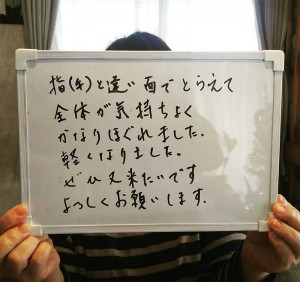 指(手)と違い面でとらえて
全体が気持ちよく
かなりほぐれました.
軽くなりました。
ぜひ又来たいです
よろしくお願いします.